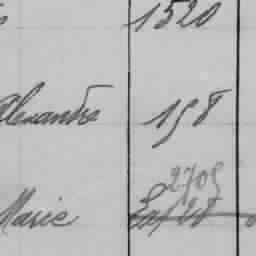 1520
Alexandre 158
2705
Marie